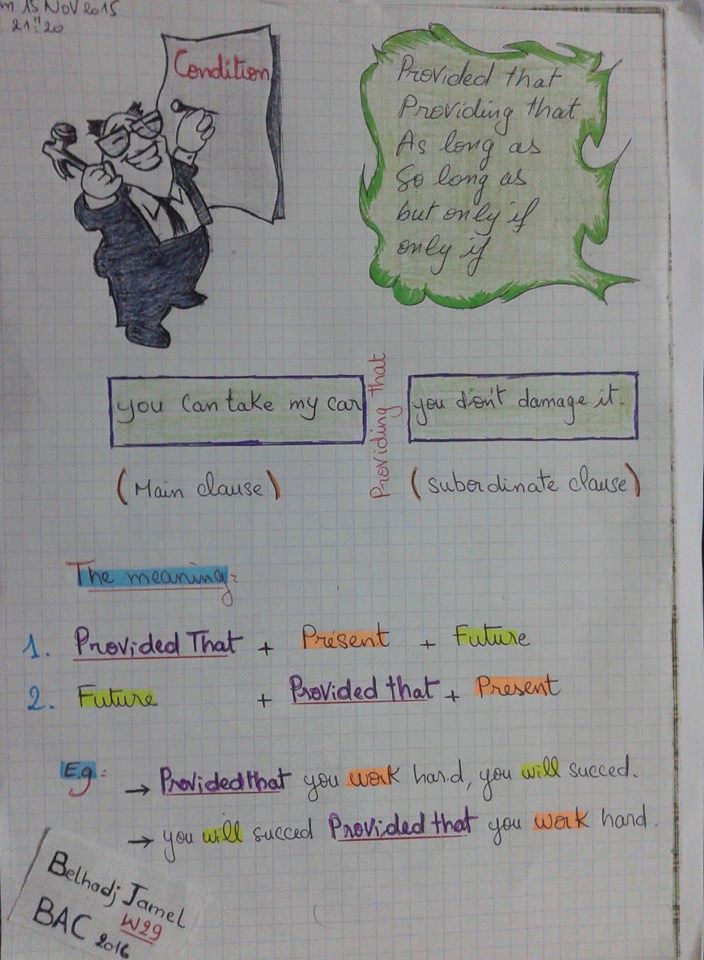 m 15 Nov 2015
21"20
Condition
Provided that
Providing that
As long as
So long as
but only if
only if
you can take my car
Providing that
you don't damage it.
(Main clause)
(subordinate clause)
The meaning:
1. Provided That + Present + Future
2. Future + Provided that + Present
E.g: → Provided that you work hard, you will succed.
→ you will succed Provided that you work hard.
Belhadj Jamel
BAC 2016 W29